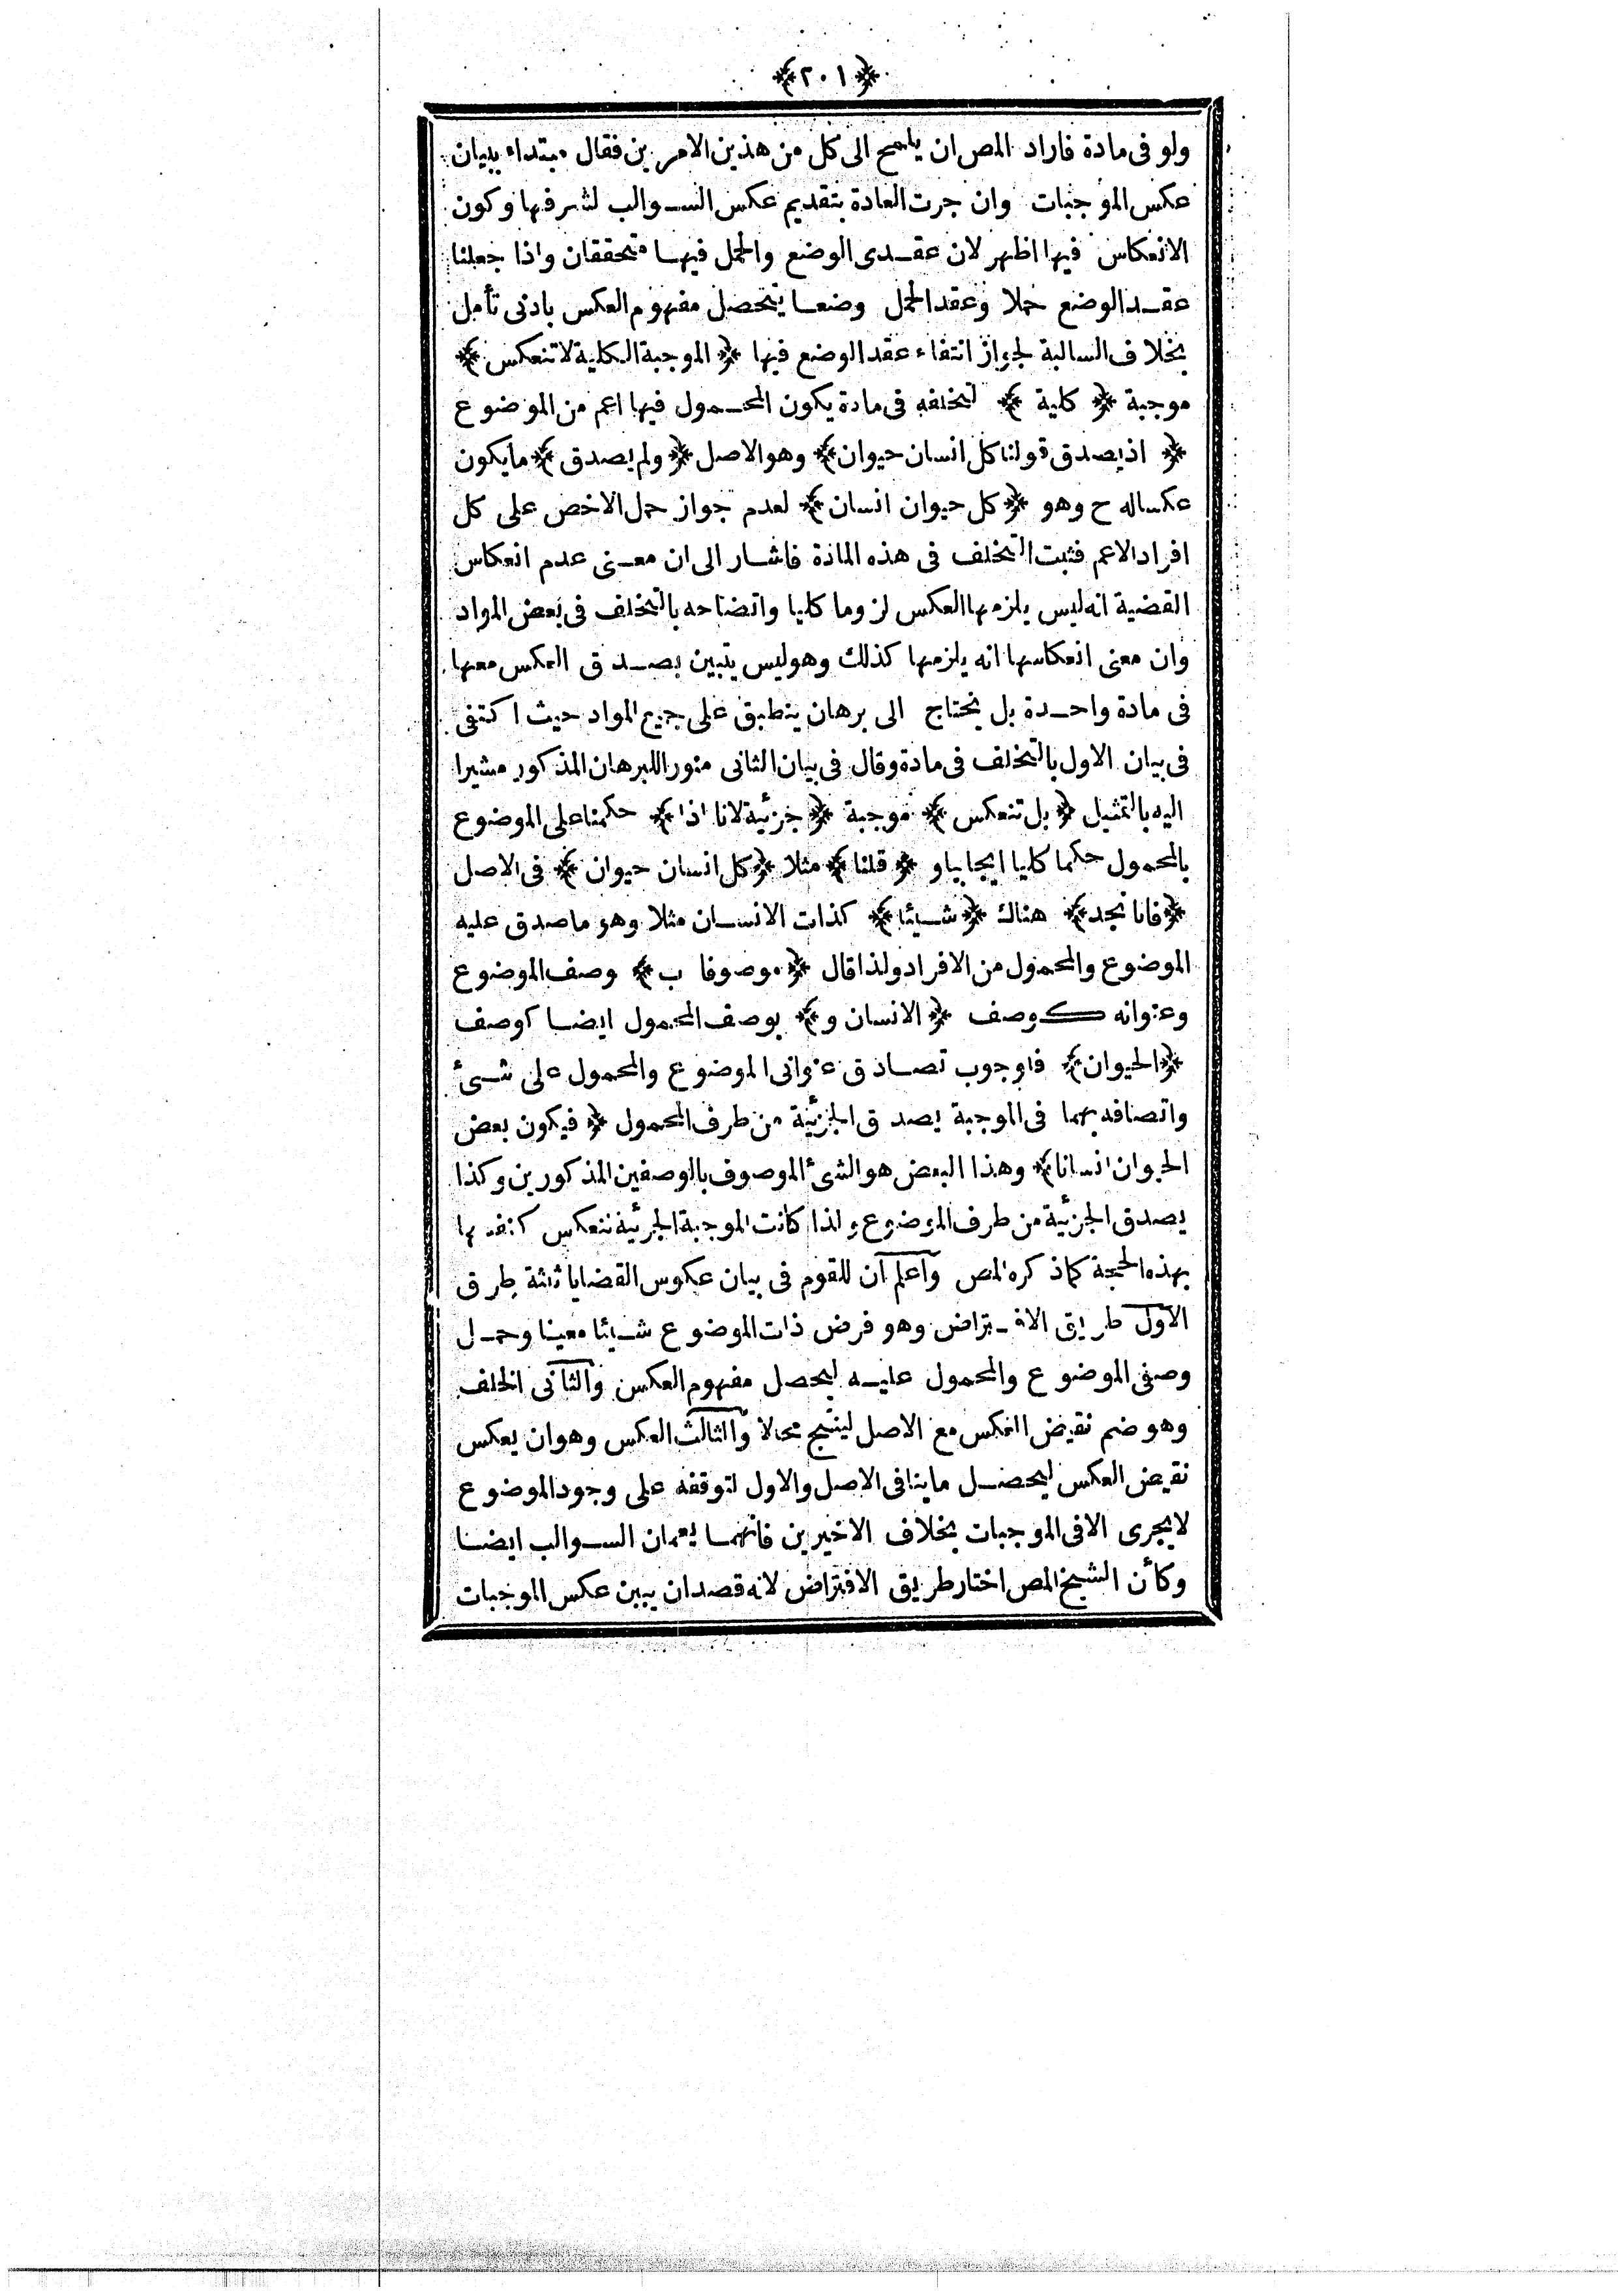 ﴿٢٠١﴾
ولو فى مادة فاراد المص ان يلمح الى كل من هذين الامرين فقال مبتداء ببيان
عكس الموجبات وان جرت العادة بتقديم عكس السوالب لشرفها وكون
الانعكاس فيها اظهر لان عقدى الوضع والحمل فيها متحققان واذا جعلنا
عقد الوضع حملا وعقد الحمل وضعا يتحصل مفهوم العكس بادنى تأمل
بخلاف السالبة لجواز انتفاء عقد الوضع فيها ﴿ الموجبة الكلية لا تنعكس ﴾
موجبة ﴿ كلية ﴾ لتخلفه فى مادة يكون المحمول فيها اعم من الموضوع
﴿ اذ يصدق قولنا كل انسان حيوان ﴾ وهو الاصل ﴿ ولم يصدق ﴾ ما يكون
عكسا له ح وهو ﴿ كل حيوان انسان ﴾ لعدم جواز حمل الاخص على كل
افراد الاعم فثبت التخلف فى هذه المادة فاشار الى ان معنى عدم انعكاس
القضية انه ليس يلزمها العكس لزوما كليا واتضاحه بالتخلف فى بعض المواد
وان معنى انعكاسها انه يلزمها كذلك وهو ليس يتبين بصدق العكس معها
فى مادة واحدة بل يحتاج الى برهان ينطبق على جميع المواد حيث اكتفى
فى بيان الاول بالتخلف فى مادة وقال فى بيان الثانى منورا للبرهان المذكور مشيرا
اليه بالتمثيل ﴿ بل تنعكس ﴾ موجبة ﴿ جزئية لانا اذا ﴾ حكمنا على الموضوع
بالمحمول حكما كليا ايجابيا و ﴿ قلنا ﴾ مثلا ﴿ كل انسان حيوان ﴾ فى الاصل
﴿ فانا نجد ﴾ هناك ﴿ شيئا ﴾ كذات الانسان مثلا وهو ما صدق عليه
الموضوع والمحمول من الافراد ولذا قال ﴿ موصوفا ب ﴾ وصف الموضوع
وعنوانه كوصف ﴿ الانسان و ﴾ بوصف المحمول ايضا كوصف
﴿ الحيوان ﴾ فلوجوب تصادق عنوانى الموضوع والمحمول على شئ
واتصافه بهما فى الموجبة يصدق الجزئية من طرف المحمول ﴿ فيكون بعض
الحيوان انسانا ﴾ وهذا البعض هو الشئ الموصوف بالوصفين المذكورين وكذا
يصدق الجزئية من طرف الموضوع ولذا كانت الموجبة الجزئية تنعكس كنفسها
بهذه الحجة كما ذكره المص واعلم ان للقوم فى بيان عكوس القضايا ثلثة طرق
الاول طريق الافتراض وهو فرض ذات الموضوع شيئا معينا وحمل
وصفى الموضوع والمحمول عليه ليحصل مفهوم العكس والثانى الخلف
وهو ضم نقيض العكس مع الاصل لينتج محالا والثالث العكس وهو ان يعكس
نقيض العكس ليحصل ما ينافى الاصل والاول لتوقفه على وجود الموضوع
لا يجرى الا فى الموجبات بخلاف الاخيرين فانهما يعمان السوالب ايضا
وكأن الشيخ المص اختار طريق الافتراض لانه قصد ان يبين عكس الموجبات